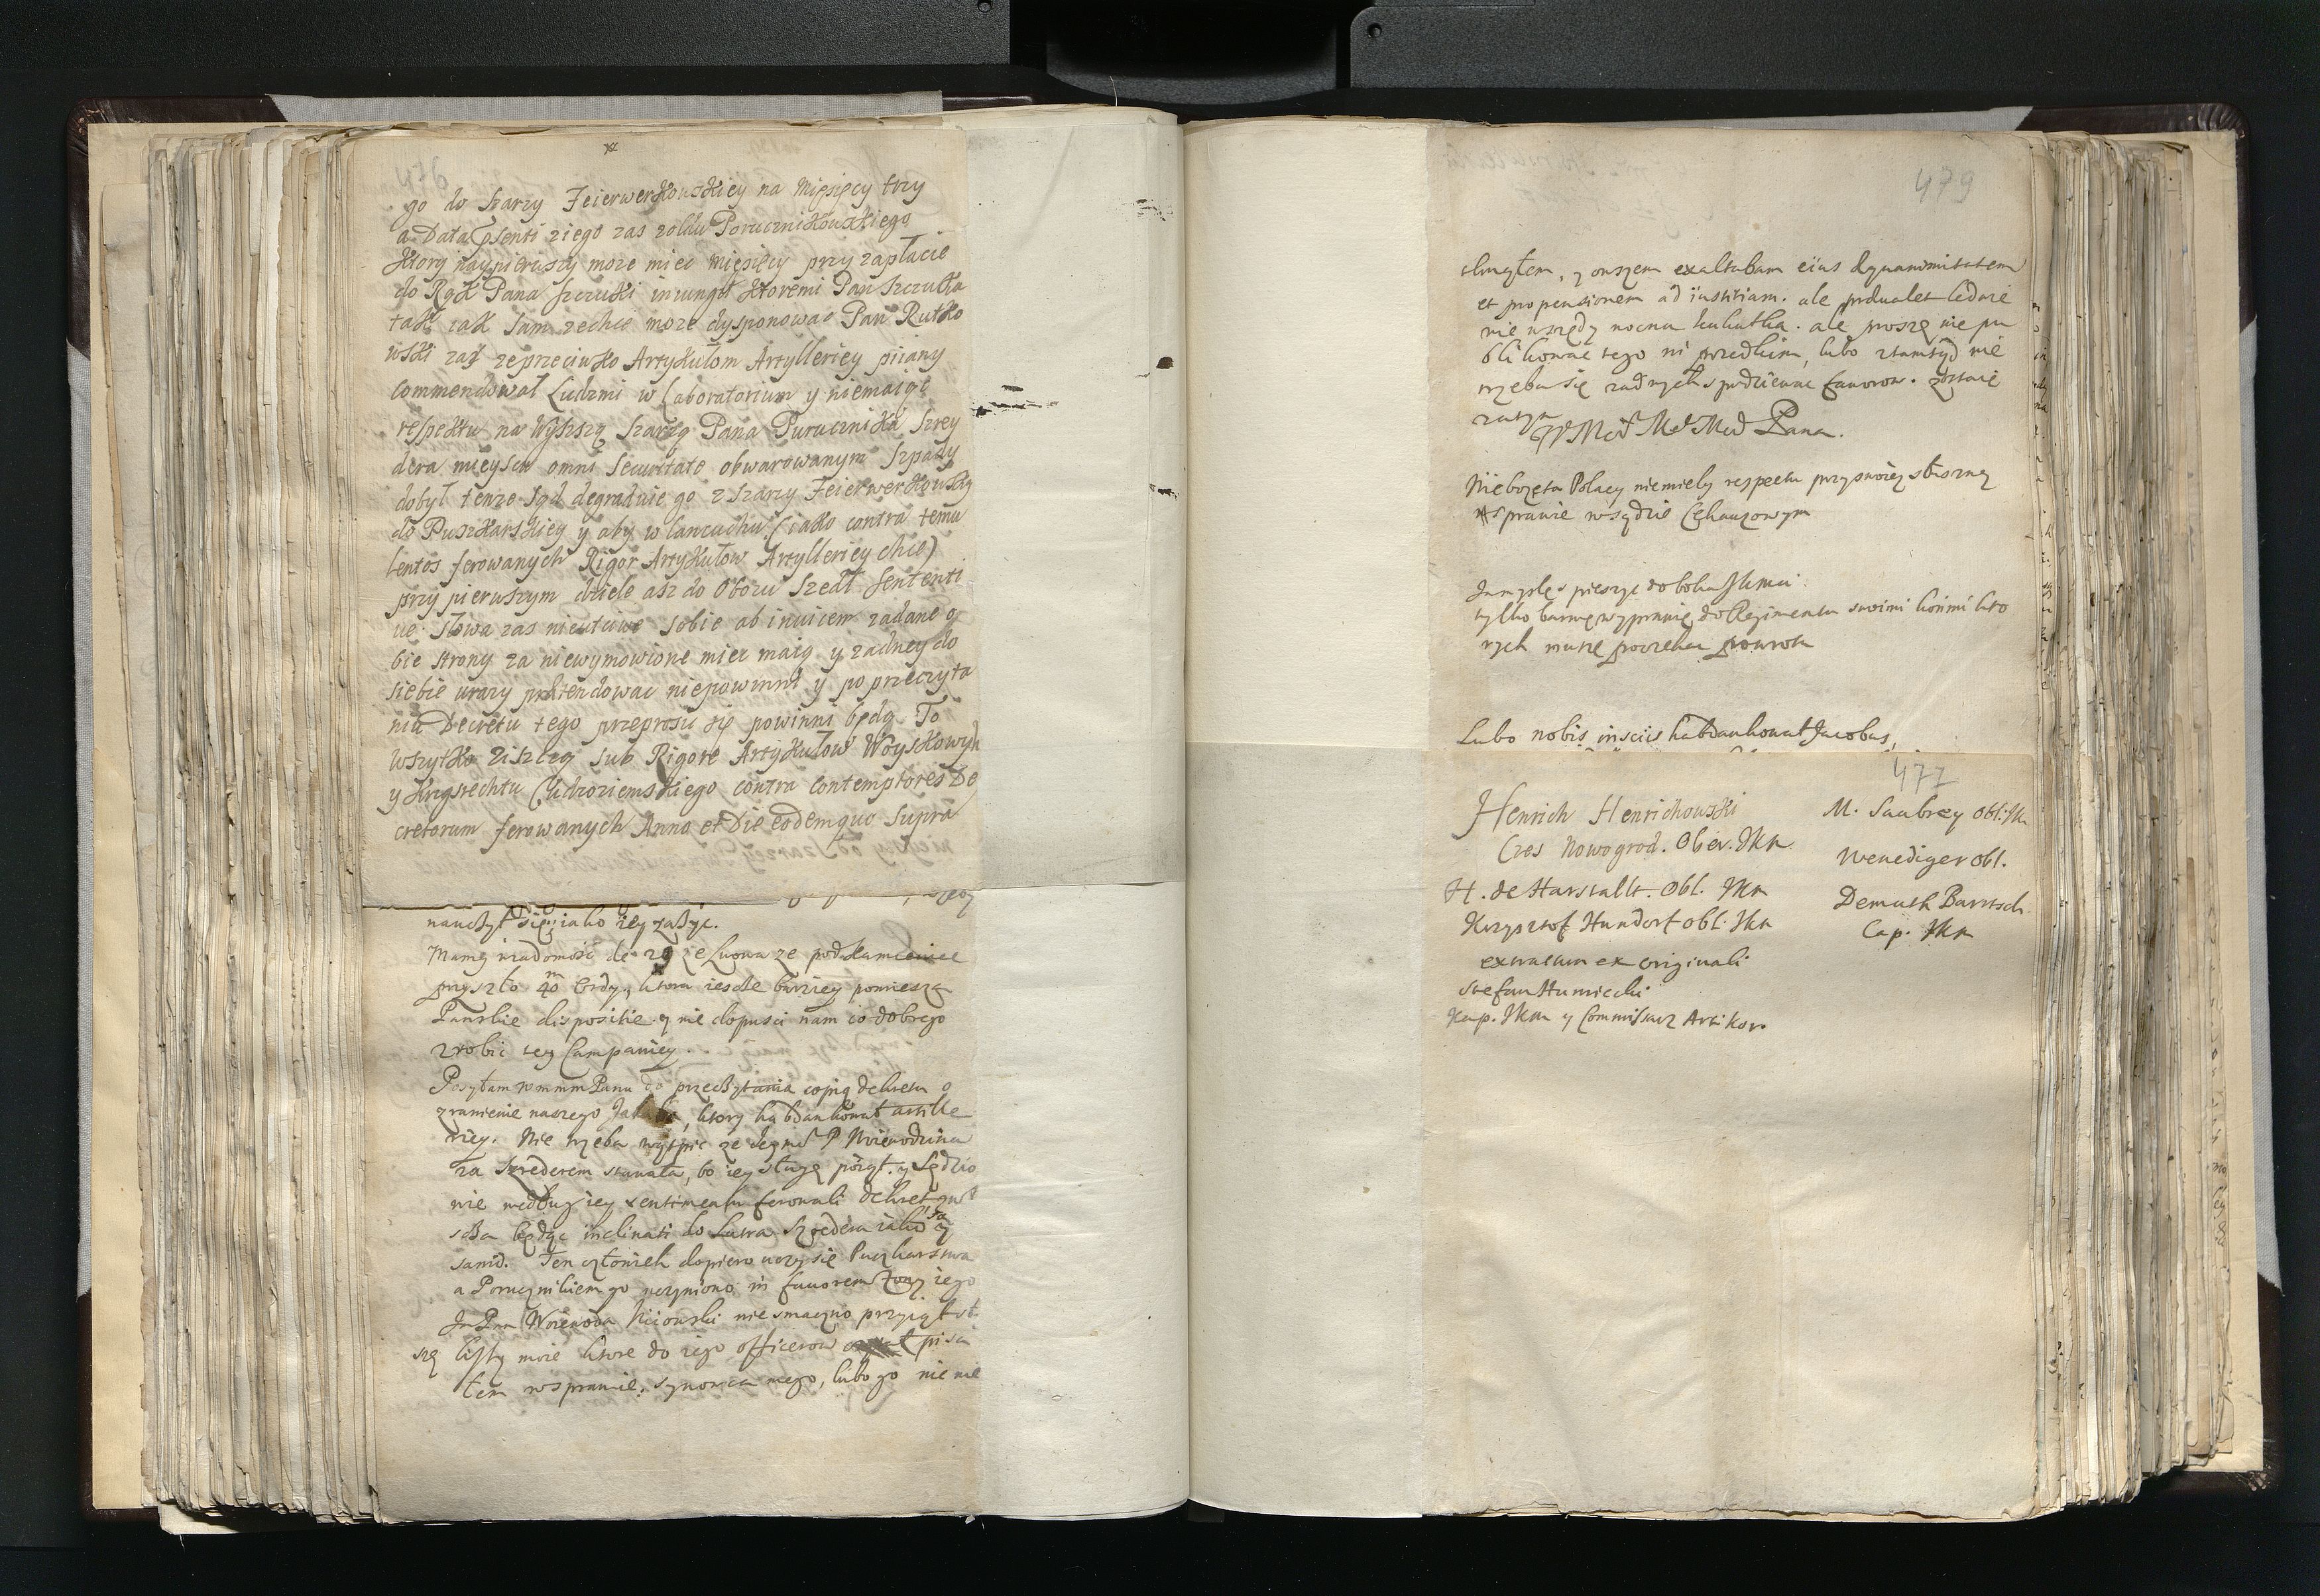 go do Szarzy Feierwerkowskiey na Miesięcy trzy
a Data sentiziego zas zołdu Porucznikowskiego
Ktory naypierwszy moze miec Miesięcy przy zapłacie
do Rąk Pana Szczuki iniungit Ktoremi Pan Szczuka
tak iak sam zechce moze dysponowac Pan Rutko
wski zas zeprzeciwko Artykułom Artylleriey piiany
Commendował Ludzmi w Laboratorium y niemaiąc
respektu na Wyszszą Szarzą Pana Purucznika Szrey
dera mieyscu omni Securitate obwarowanym Szpady
dobył tenze Sąd degraduie go z Szarzy Feierwerkowsky
do Puszkarskiey y aby w lancuchu (iako contra temu
lentos ferowanych Rigor Artykułow Artylleriey chce)
przy pierwszym dziele asz do Obozu Szedł Sententi
ue. Słowa zas nieutciwe Sobie ab inuicem zadane o
bie Strony za niewymowione miec maią y zadney do
siebie urazy prætendowac niepowinni y po przeczyta
niu Decretu tego przeprosic się powinni będą To
wszytko ziszczą sub Rigore Artykułow Woyskowych
y Krygsrechtu Cudzoziemskiego contra Contemptores De
cretorum ferowanych Anno et Die eodemque Supra
nauczył się iako iey zazyc.
Mamy wiadomość de 29 ze Lwowa ze pod Kamieniec
przyszło 40 m Ordy, ktora iescze barziey pomiesza
Panskie dispositie y nie dopusci nam co dobrego
zrobic tey Campaniey.
Posyłam WMMM Panu do przeczytania copią dekretu o
zranienie naszego, ktory habdankował artille
riey. Nie trzeba wątpic ze Jeymć P Woiewodzina
za Szrederem stawała, bo iey służy y Sędzio
wie według iey sentimentu ferowali dekret
będąc inclinati do Lutra Szredera iako y
sami. Ten człowiek dopiero uczy się Puszkarstwa
a Porucznikiem go uczyniono in fauorem żony iego
Jm Pan Woiewoda Kiiowski nie smaczno przyiął
listy moie ktore do iego officerow pisa
łem w sprawie synowca mego, lubo go nie
479
y owszem exaltabam eius æquanimitatem
et propensionem ad iustitiam. ale
nie wszędy mocna kukułka. ale proszę nie pu
blikowac tego ni przedkim, lubo ztamtąd nie
trzeba się zadnych spodziewac fauorow. zostaię
zatym
WMci MM Mci Pana.
Niebozęta Polacy niemieli respectu przy swoiey słuszney
sprawie w sądzie Cekauzowym
Ja myslę spieszyc do boku JKmci
tylko barwę wyprawię do Regimentu swoimi końmi kto
rych muszę poczekac powrotu
Lubo nobis insciis habdankował Jacobus,
477
Henrich Henrichowski
Czes Nowogrod. Ober. JKM
H. de Harstallt. Obl. JKM
Krzysztof Hundorf Obl. JKM
extractum ex originali
Stefan Humiecki
Kap. JKM y Commissarz Arti Kor.
M. Saubrey Obl. JK
Wenediger Obl.
Demuth Bartsch
Cap. JKM